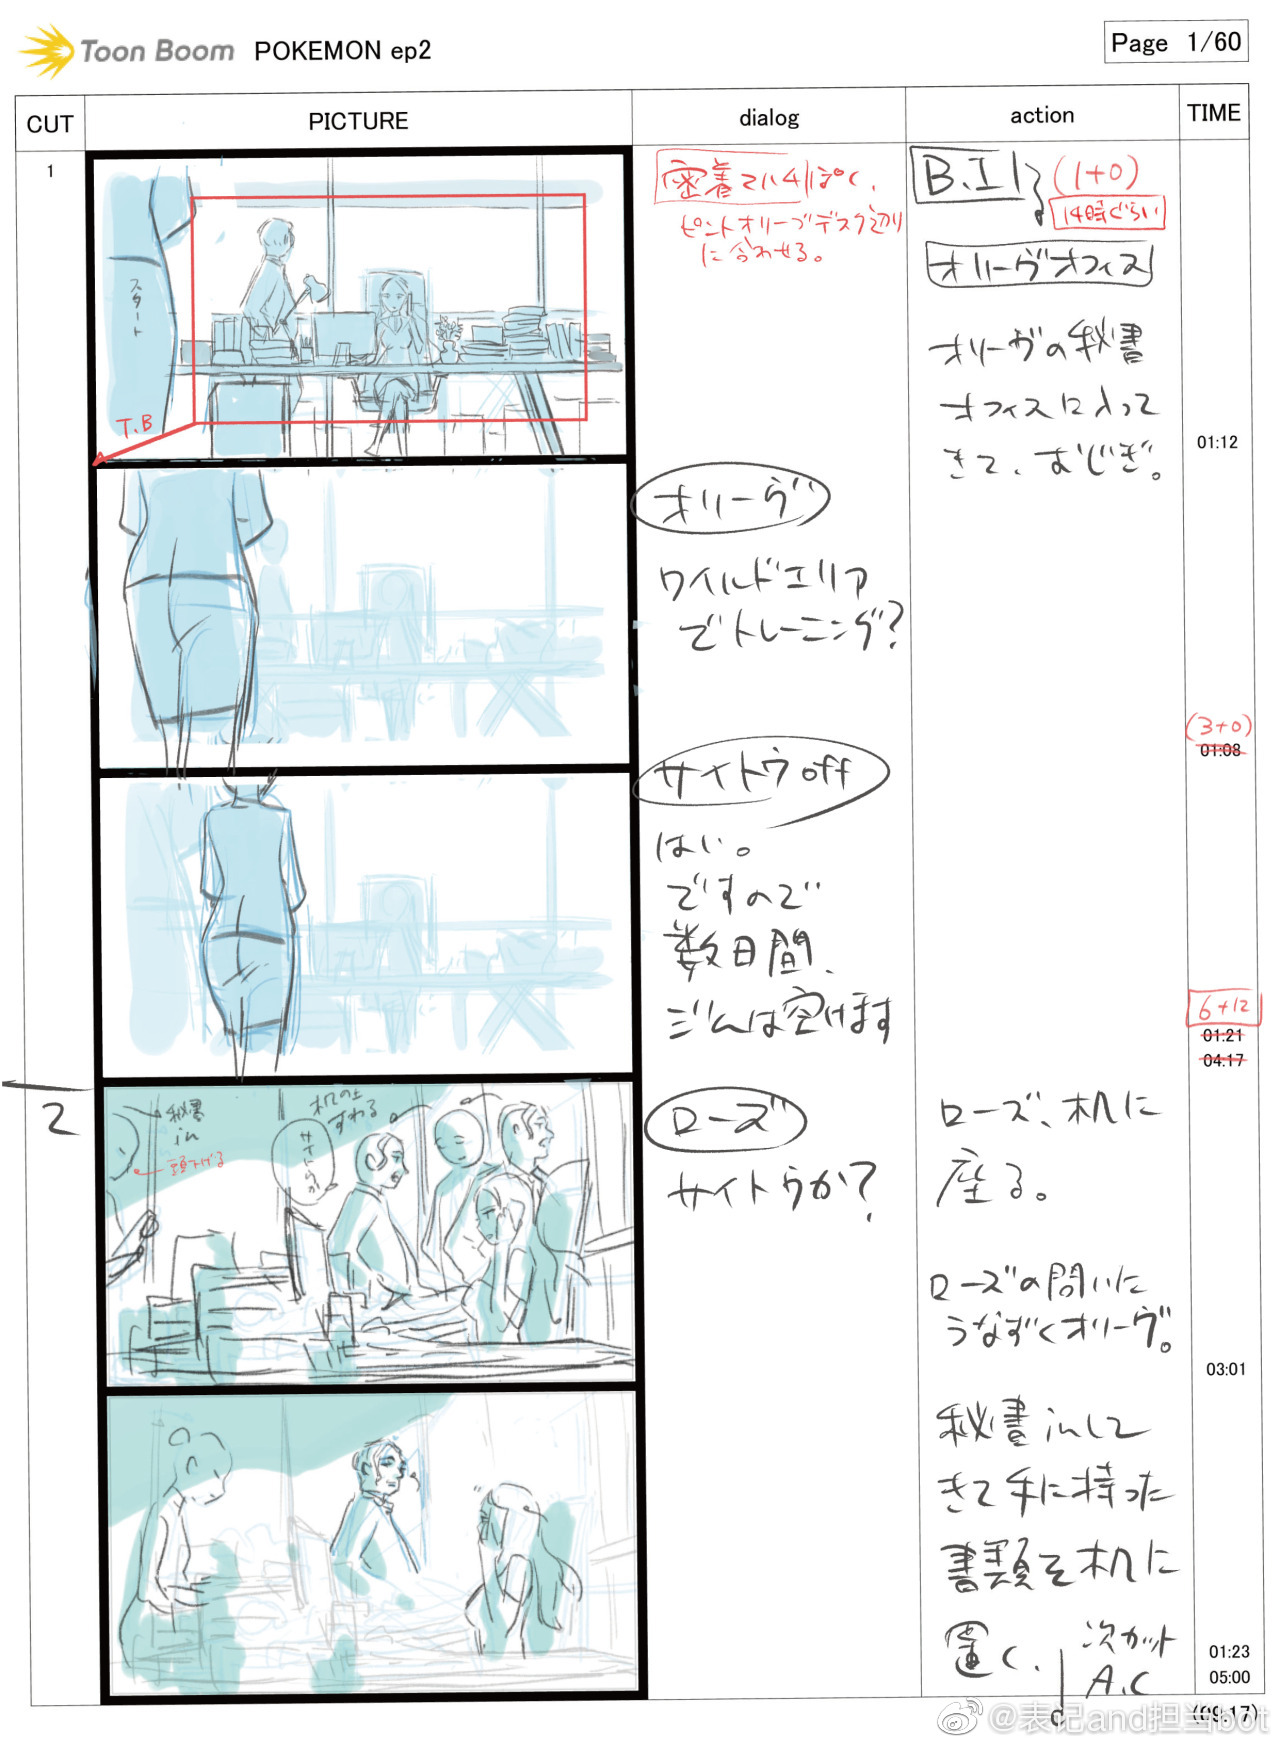 Toon Boom POKEMON ep2
Page 1/60
CUT PICTURE dialog action TIME
1
スタート
T.B
ピントオリーブデスク辺り
に合わせる。
B.I
(1+0)
14時ぐらい
オリーヴオフィス
オリーヴの秘書
オフィスに入って
きて、おじぎ。
01:12
オリーヴ
ワイルドエリア
でトレーニング?
(3+0)
01:08
サイトウoff
はい。
ですので
数日間、
ジムは空けます
6+12
01:21
04:17
2
秘書
in
頭下げる
机の上
すわる
サイトウか?
ローズ
サイトウか?
ローズ、机に
座る。
ローズの問いに
うなずくオリーヴ。
03:01
秘書inして
きて手に持った
書類を机に
置く、
次カット
A.C
01:23
05:00
(09:17)
@表记and担当bot